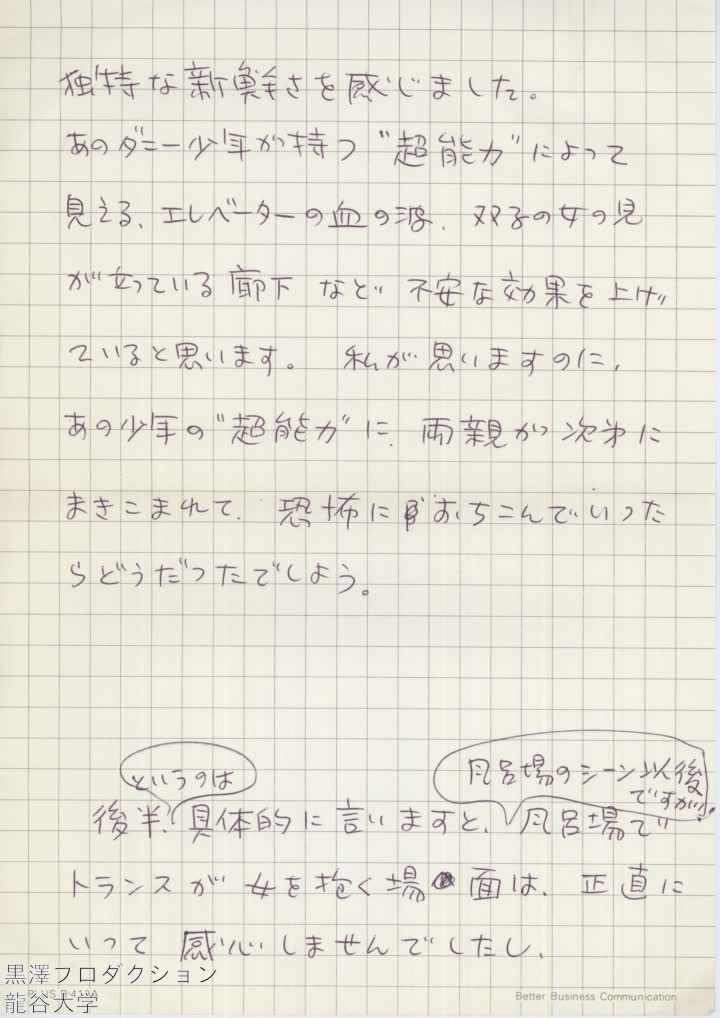 独特な新鮮さを感じました。
あのダニー少年が持つ“超能力”によって
見える、エレベーターの血の波、双子の女の児
が立っている廊下 など 不安な効果を上げ
ていると思います。 私が思いますのに、
あの少年の“超能力”に、両親が次第に
まきこまれて、恐怖におちこんでいった
らどうだったでしょう。
というのは
風呂場のシーン以後
ですが、
後半、具体的に言いますと、風呂場で
トランスが女を抱く場面は、正直に
いって 感心しませんでしたし、
黒澤プロダクション
龍谷大学
Better Business Communication